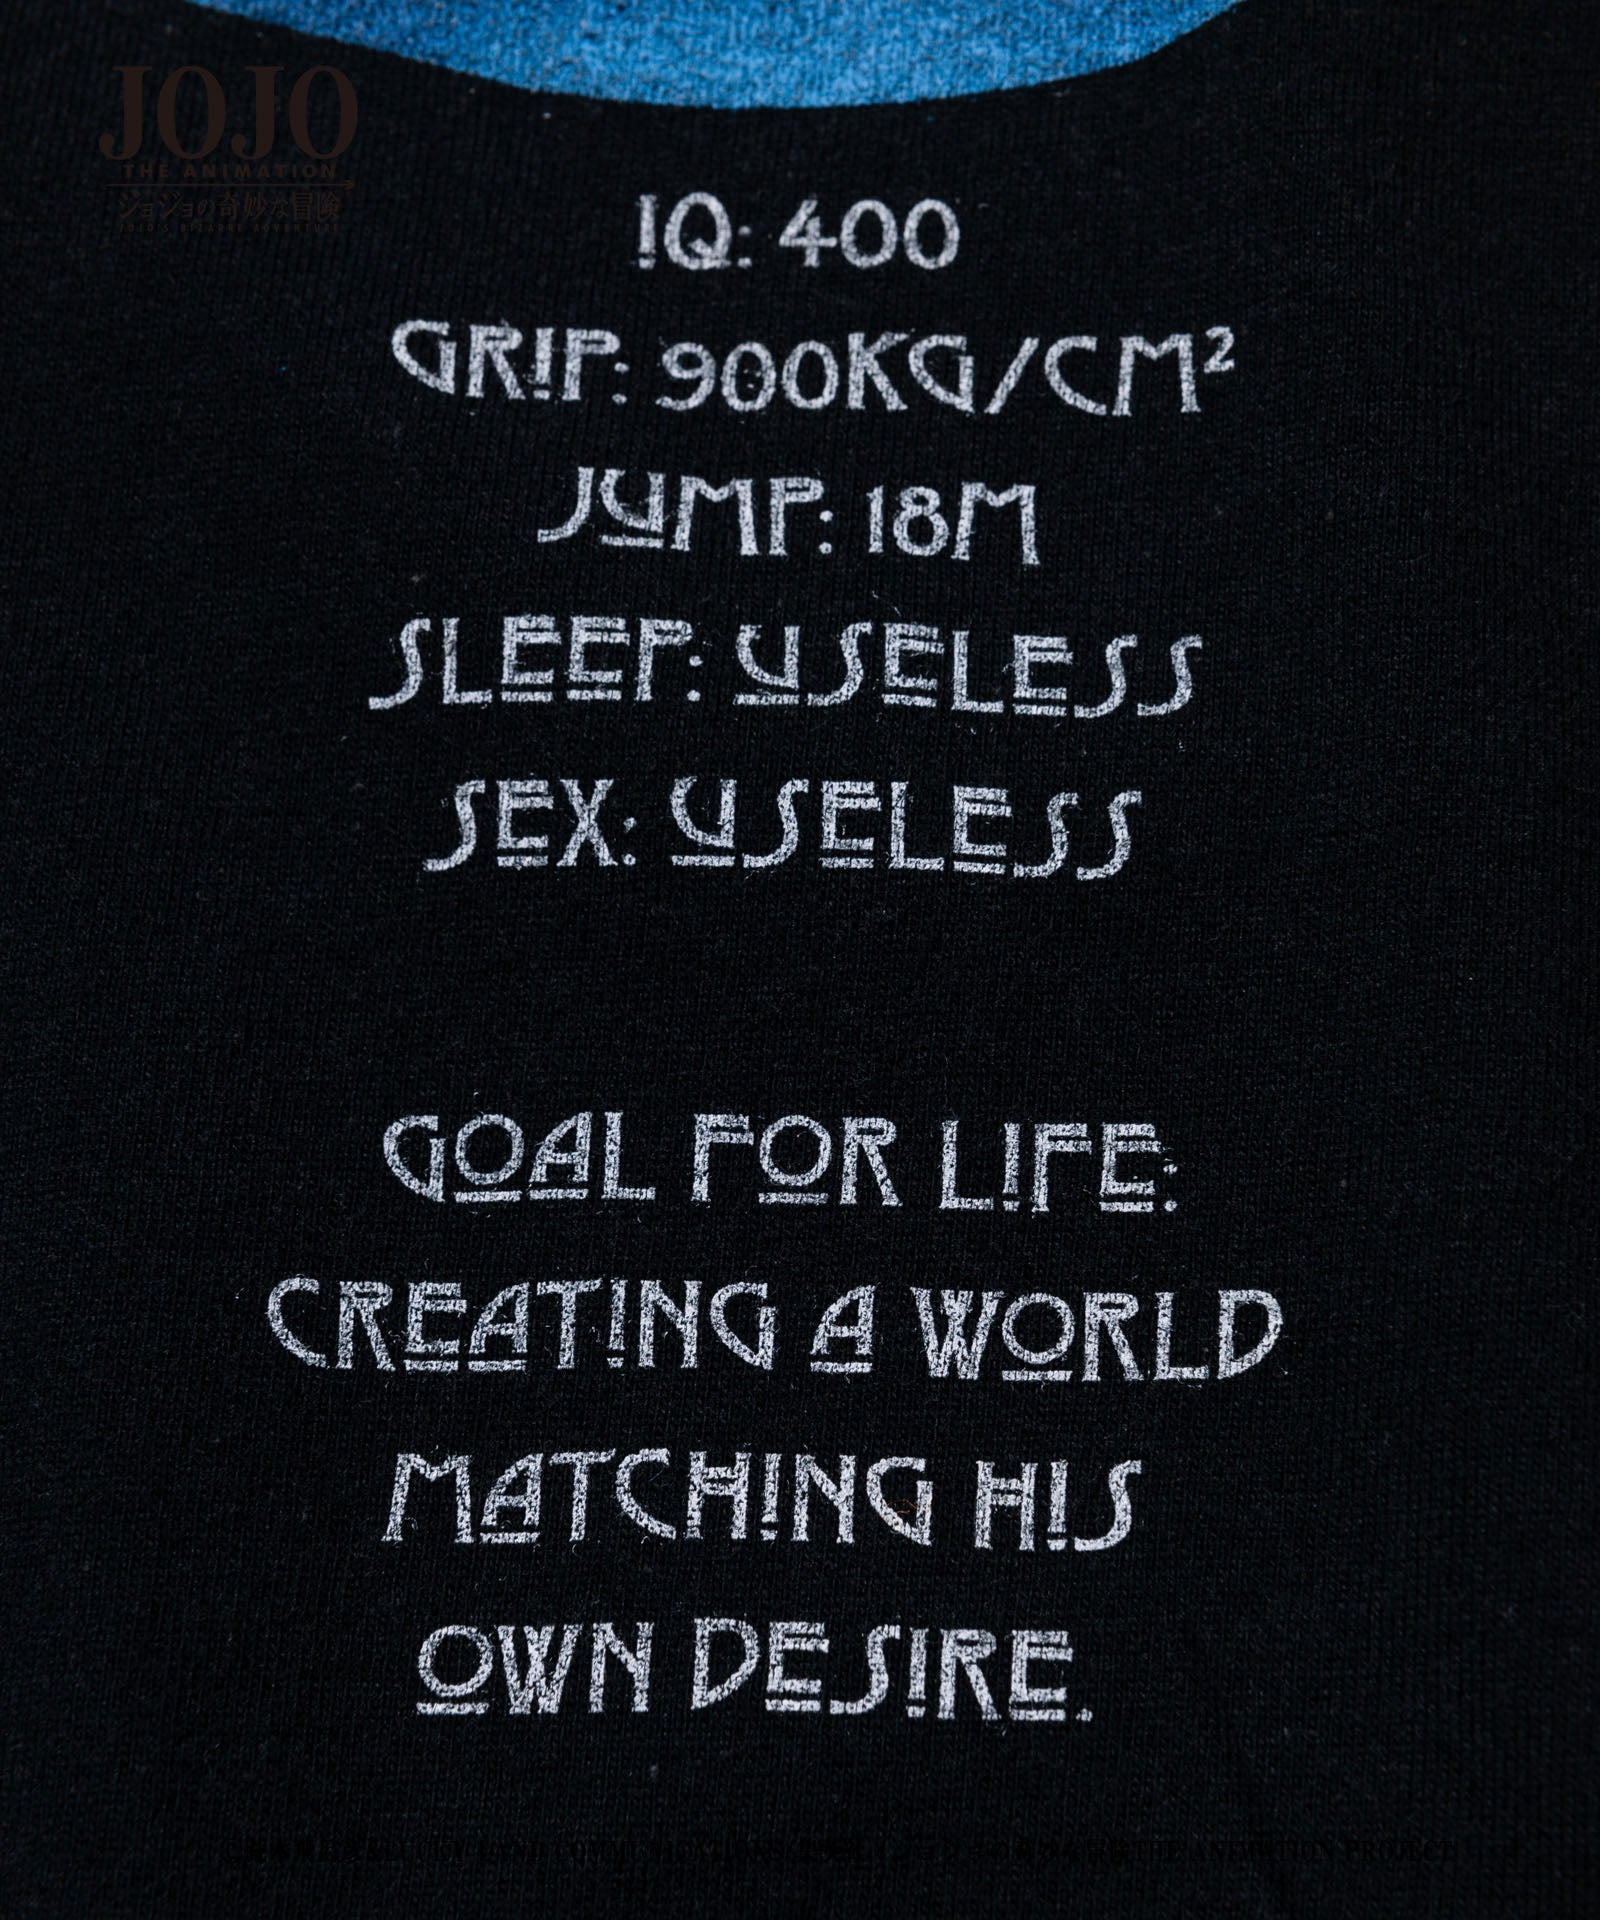 JOJO
THE ANIMATION
ジョジョの奇妙な冒険
JOJO'S BIZARRE ADVENTURE
IQ: 400
GRIP: 900KG/CM²
JUMP: 18M
SLEEP: USELESS
SEX: USELESS
GOAL FOR LIFE:
CREATING A WORLD
MATCHING HIS
OWN DESIRE.
THE ANIMATION PROJECT